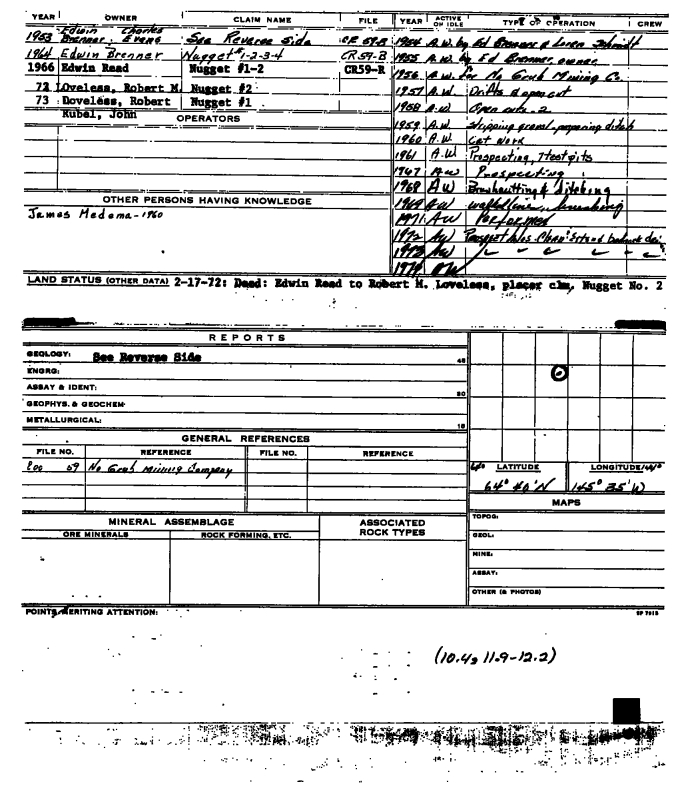 YEAR OWNER CLAIM NAME FILE YEAR ACTIVE OR IDLE TYPE OF OPERATION CREW
1953 Edwin Brenner, Charles Evans See Reverse Side CR 59-R 1954 A.W. by Ed Brenner & Loren Schmidt
1964 Edwin Brenner Nugget #1-2-3-4 CR59-R 1955 A.W. by Ed Brenner, owner
1966 Edwin Read Nugget #1-2 CR59-R 1956 A.W. for No Grub Mining Co.
72 Loveless, Robert M. Nugget #2 1957 A.W. Drifts & open cut
73 Doveless, Robert Nugget #1 1958 A.W. Open cuts-2
Kubel, John
OPERATORS
1959 A.W. Stripping gravel-preparing ditch
1960 A.W. Cat work
1961 A.W. Prospecting, 7 test pits
1967 AW Prospecting
1968 AW Brushcutting & ditching
OTHER PERSONS HAVING KNOWLEDGE
1969 AW
James Medema-1960
1971 AW Performed
1972 AW
1973 AW
1974 AW
LAND STATUS (OTHER DATA) 2-17-72: Deed: Edwin Read to Robert M. Loveless, placer clm, Nugget No. 2
REPORTS
GEOLOGY: See Reverse Side 45
ENGRG:
ASSAY & IDENT: 30
GEOPHYS. & GEOCHEM:
METALLURGICAL: 15
GENERAL REFERENCES
FILE NO. REFERENCE FILE NO. REFERENCE
59 No Grub Mining Company
LATITUDE LONGITUDE
64° 40'N 145° 35'W
MAPS
MINERAL ASSEMBLAGE ASSOCIATED ROCK TYPES
ORE MINERALS ROCK FORMING, ETC.
TOPOG:
GEOL:
MINE:
ASSAY:
OTHER (& PHOTOS)
POINTS MERITING ATTENTION:
(10.4, 11.9-12.2)